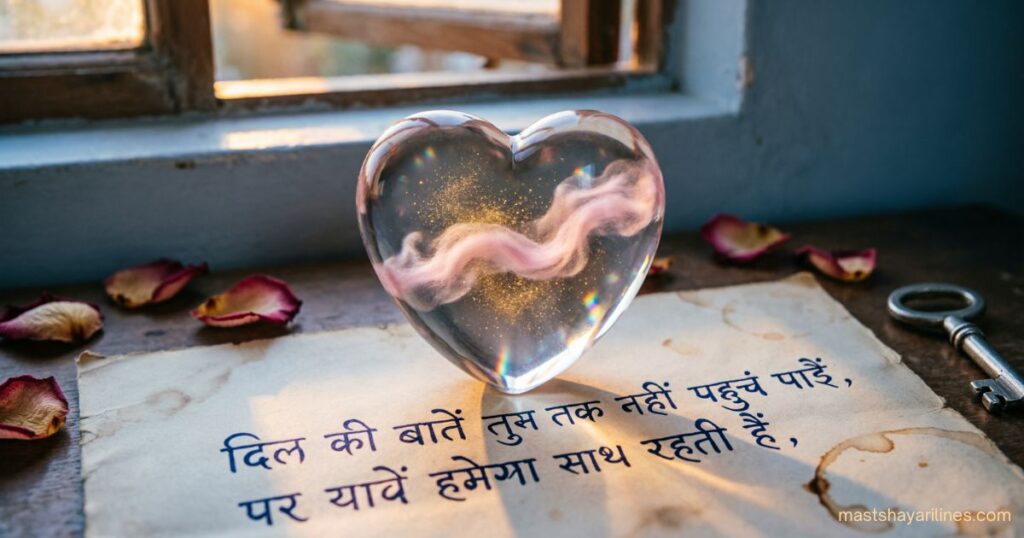 दिल की बातें तुम तक नहीं पहुचं पाईं,
पर यावें हमेगा साथ रहती हैं,
mastshayarilines.com